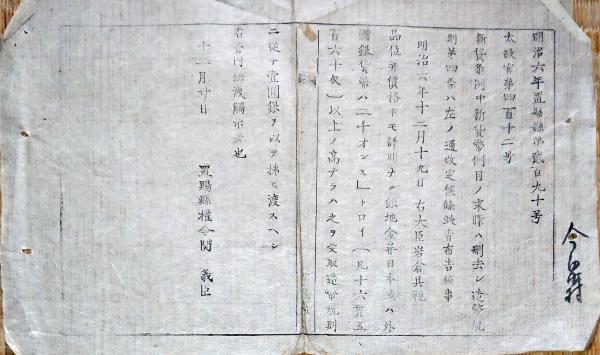 明治六年置賜縣第貳百九十号
太政官第四百十二号
新貨条例中新貨幣例目ノ末條ハ刪去シ造幣規
則第四条ハ左ノ通改定候條此旨布告候事
明治六年十二月十九日 右大臣岩倉具視
品位幷價格トモ詳明ナル銀地金幷日本或ハ外
國銀貨幣ハ二千オンス」トロイ(凡十六貫五、
百六十匁)以上ノ高ナラハ之ヲ受取造幣規則
ニ從テ壹圓銀ヲ以テ拂ヒ渡スヘシ
右管内無洩觸示者也
十二月廿日
置賜縣權令関 義臣
今泉村